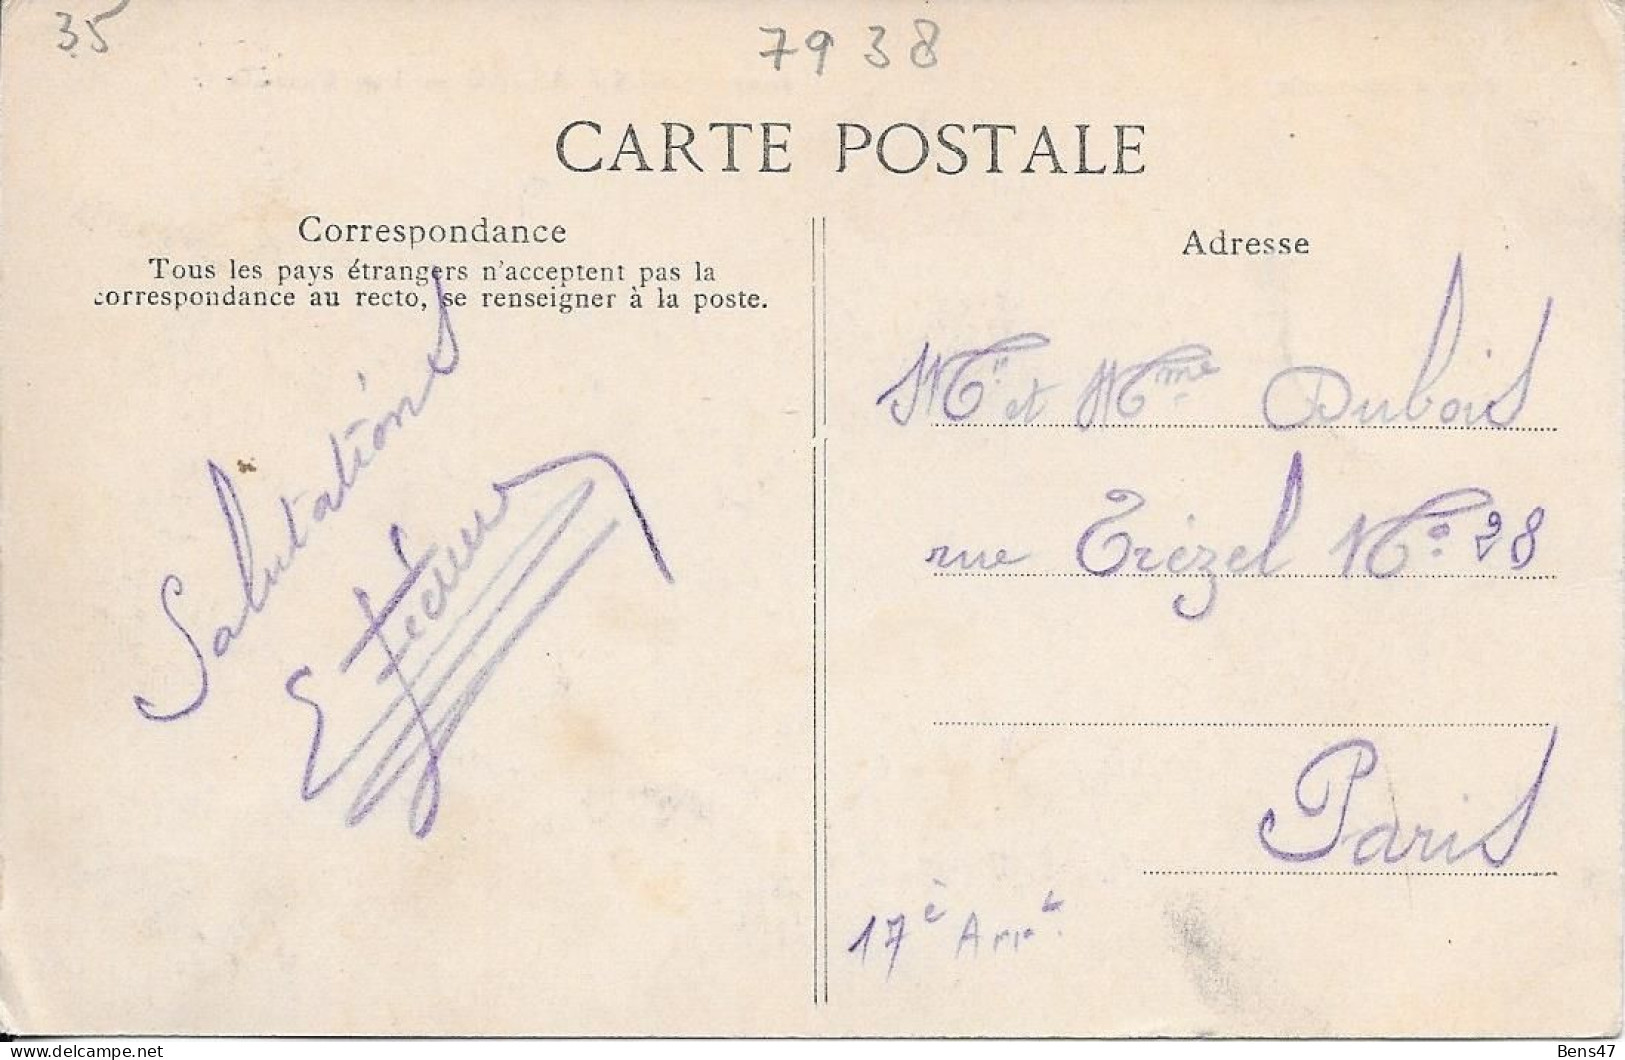 35
7938
CARTE POSTALE
Correspondance
Tous les pays étrangers n'acceptent pas la
correspondance au recto, se renseigner à la poste.
Salutations
Adresse
Mr et Mme Dubois
rue Trézel No 28
Paris
17è Arrt
delcampe.net
Bens47